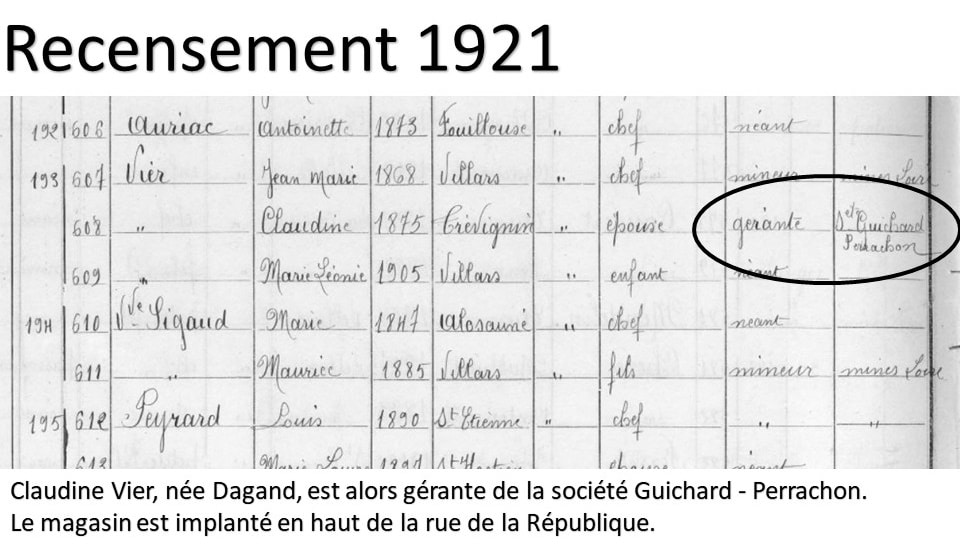 Recensement 1921
192 606 Auriac Antoinette 1873 Fouillouse " chef néant
193 607 Vier Jean Marie 1868 Villars " chef mineur mines Loire
608 " Claudine 1875 Trévignin " épouse gérante Sté Guichard
Perrachon
609 " Marie Léonie 1905 Villars " enfant néant
194 610 Vve Sigaud Marie 1847 " chef néant
611 " Maurice 1885 Villars " fils mineur mines Loire
195 612 Peyrard Louis 1890 St Etienne " chef " "
613 Marie 189 St épouse néant
Claudine Vier, née Dagand, est alors gérante de la société Guichard - Perrachon.
Le magasin est implanté en haut de la rue de la République.